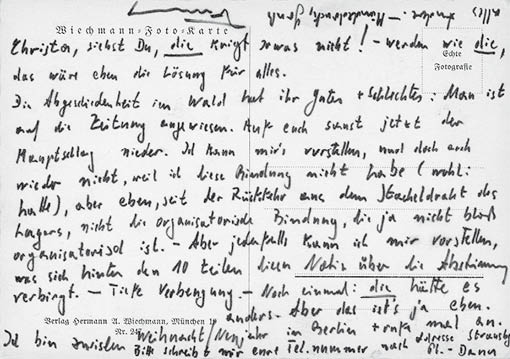 alles
Wiechmann-Foto-Karte
Christa, siehst Du, die kriegt sowas nicht! – werden wie die,
Echte
Fotografie
das wäre eben die Lösung für alles.
Die Abgeschiedenheit im Wald hat ihr Gutes + Schlechtes: Man ist
auf die Zeitung angewiesen. Auf euch saust jetzt der
Hauptschlag nieder. Ich kann mir's vorstellen, und doch auch
wieder nicht, weil ich diese Bindung nicht habe (wohl:
hatte), aber eben, seit der Rückkehr aus dem Stacheldraht des
Lagers, nicht die organisatorische Bindung, die ja nicht bloß
organisatorisch ist. – Aber jedenfalls kann ich mir vorstellen,
was sich hinter den 10 Zeilen dieser Notiz über die Abstimmung
verbirgt. – Tiefe Verbeugung. – Noch einmal: die hätte es
anders. Aber das ist's ja eben.
Verlag Hermann A. Wiechmann, München 19
Nr. 24
Ich bin zwischen Weihnacht/Neujahr in Berlin + rufe mal an.
Bitte schreibt mir eure Tel.nummer nach Adresse Strausby
Pl. Damm